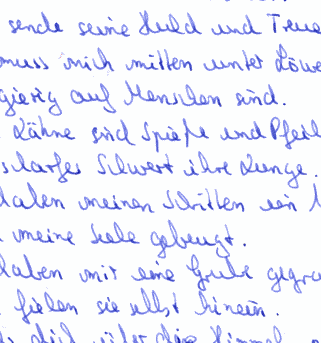 sende seine Huld und Treue
muss mich mitten unter Löwe
gierig auf Menschen sind.
Zähne sind Spieße und Pfeil
scharfes Schwert ihre Zunge.
haben meinen Schritten ein
meine Seele gebeugt.
haben mir eine Grube gegra
fielen sie selbst hinein.
dich über die Himmel